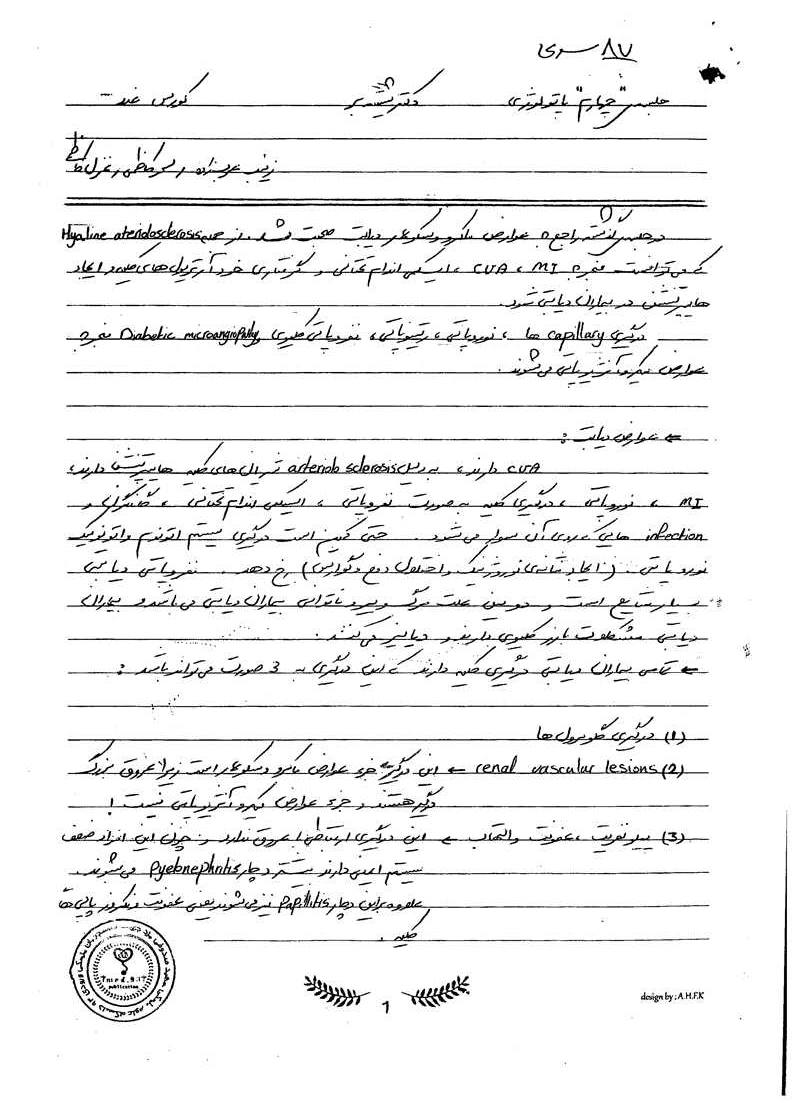 سری ۸۷
جلسه "چهارم" پاتولوژی دکتر کورس غدد
زینب عربزاده
در جلسه گذشته راجع به عوارض ماکرو وسکولار دیابت صحبت شد. از جمله Hyaline arteriolosclerosis
که می‌توانست منجر به CVA ، MI ، ایسکمی اندام تحتانی و گرفتاری خود آرتریول‌های کلیه و ایجاد
هایپرتنشن در بیماران دیابتی شود.
درگیری capillary ها ، نوروپاتی ، رتینوپاتی ، نفروپاتی Diabetic microangiopathy منجر به
عوارض میکروآنژیوپاتی می‌شوند.
← عوارض دیابت :
CVA دارند، به دلیل arteriolosclerosis شریان‌های کلیه هایپرتنشن دارند،
MI ، نوروپاتی ، درگیری کلیه به صورت نفروپاتی ، ایسکمی اندام تحتانی ، گانگرن و
infection هایی که روی آن سوار می‌شود. حتی ممکن است درگیری سیستم اتونوم و اتونومیک
نوروپاتی (ایجاد مثانه‌ی نوروژنیک و اختلال دفع و گوارش) رخ دهد. نفروپاتی دیابتی
بسیار شایع است و دومین علت مرگ و میر و ناتوانی بیماران دیابتی می‌باشد و بیماران
دیابتی مشکلات بارز کلیوی دارند و دیالیز می‌کنند.
← تمامی بیماران دیابتی درگیری کلیه دارند که این درگیری به 3 صورت می‌تواند باشد :
(1) درگیری گلومرول ها
(2) renal vascular lesions ← این درگیری جزء عوارض ماکرو وسکولار است زیرا عروق بزرگ
درگیر هستند و جزء عوارض میکروآنژیوپاتی نیست !
(3) پیلونفریت ، عفونت و التهاب ← این درگیری ارتباطی با عروق ندارد و چون این افراد ضعف
سیستم ایمنی دارند بیشتر دچار Pyelonephritis می‌شوند.
علاوه بر این دچار Papillitis نیز می‌شوند یعنی عفونت و نکروز پاپی‌ها
کلیه .
publication
1
design by : A.H.F.K